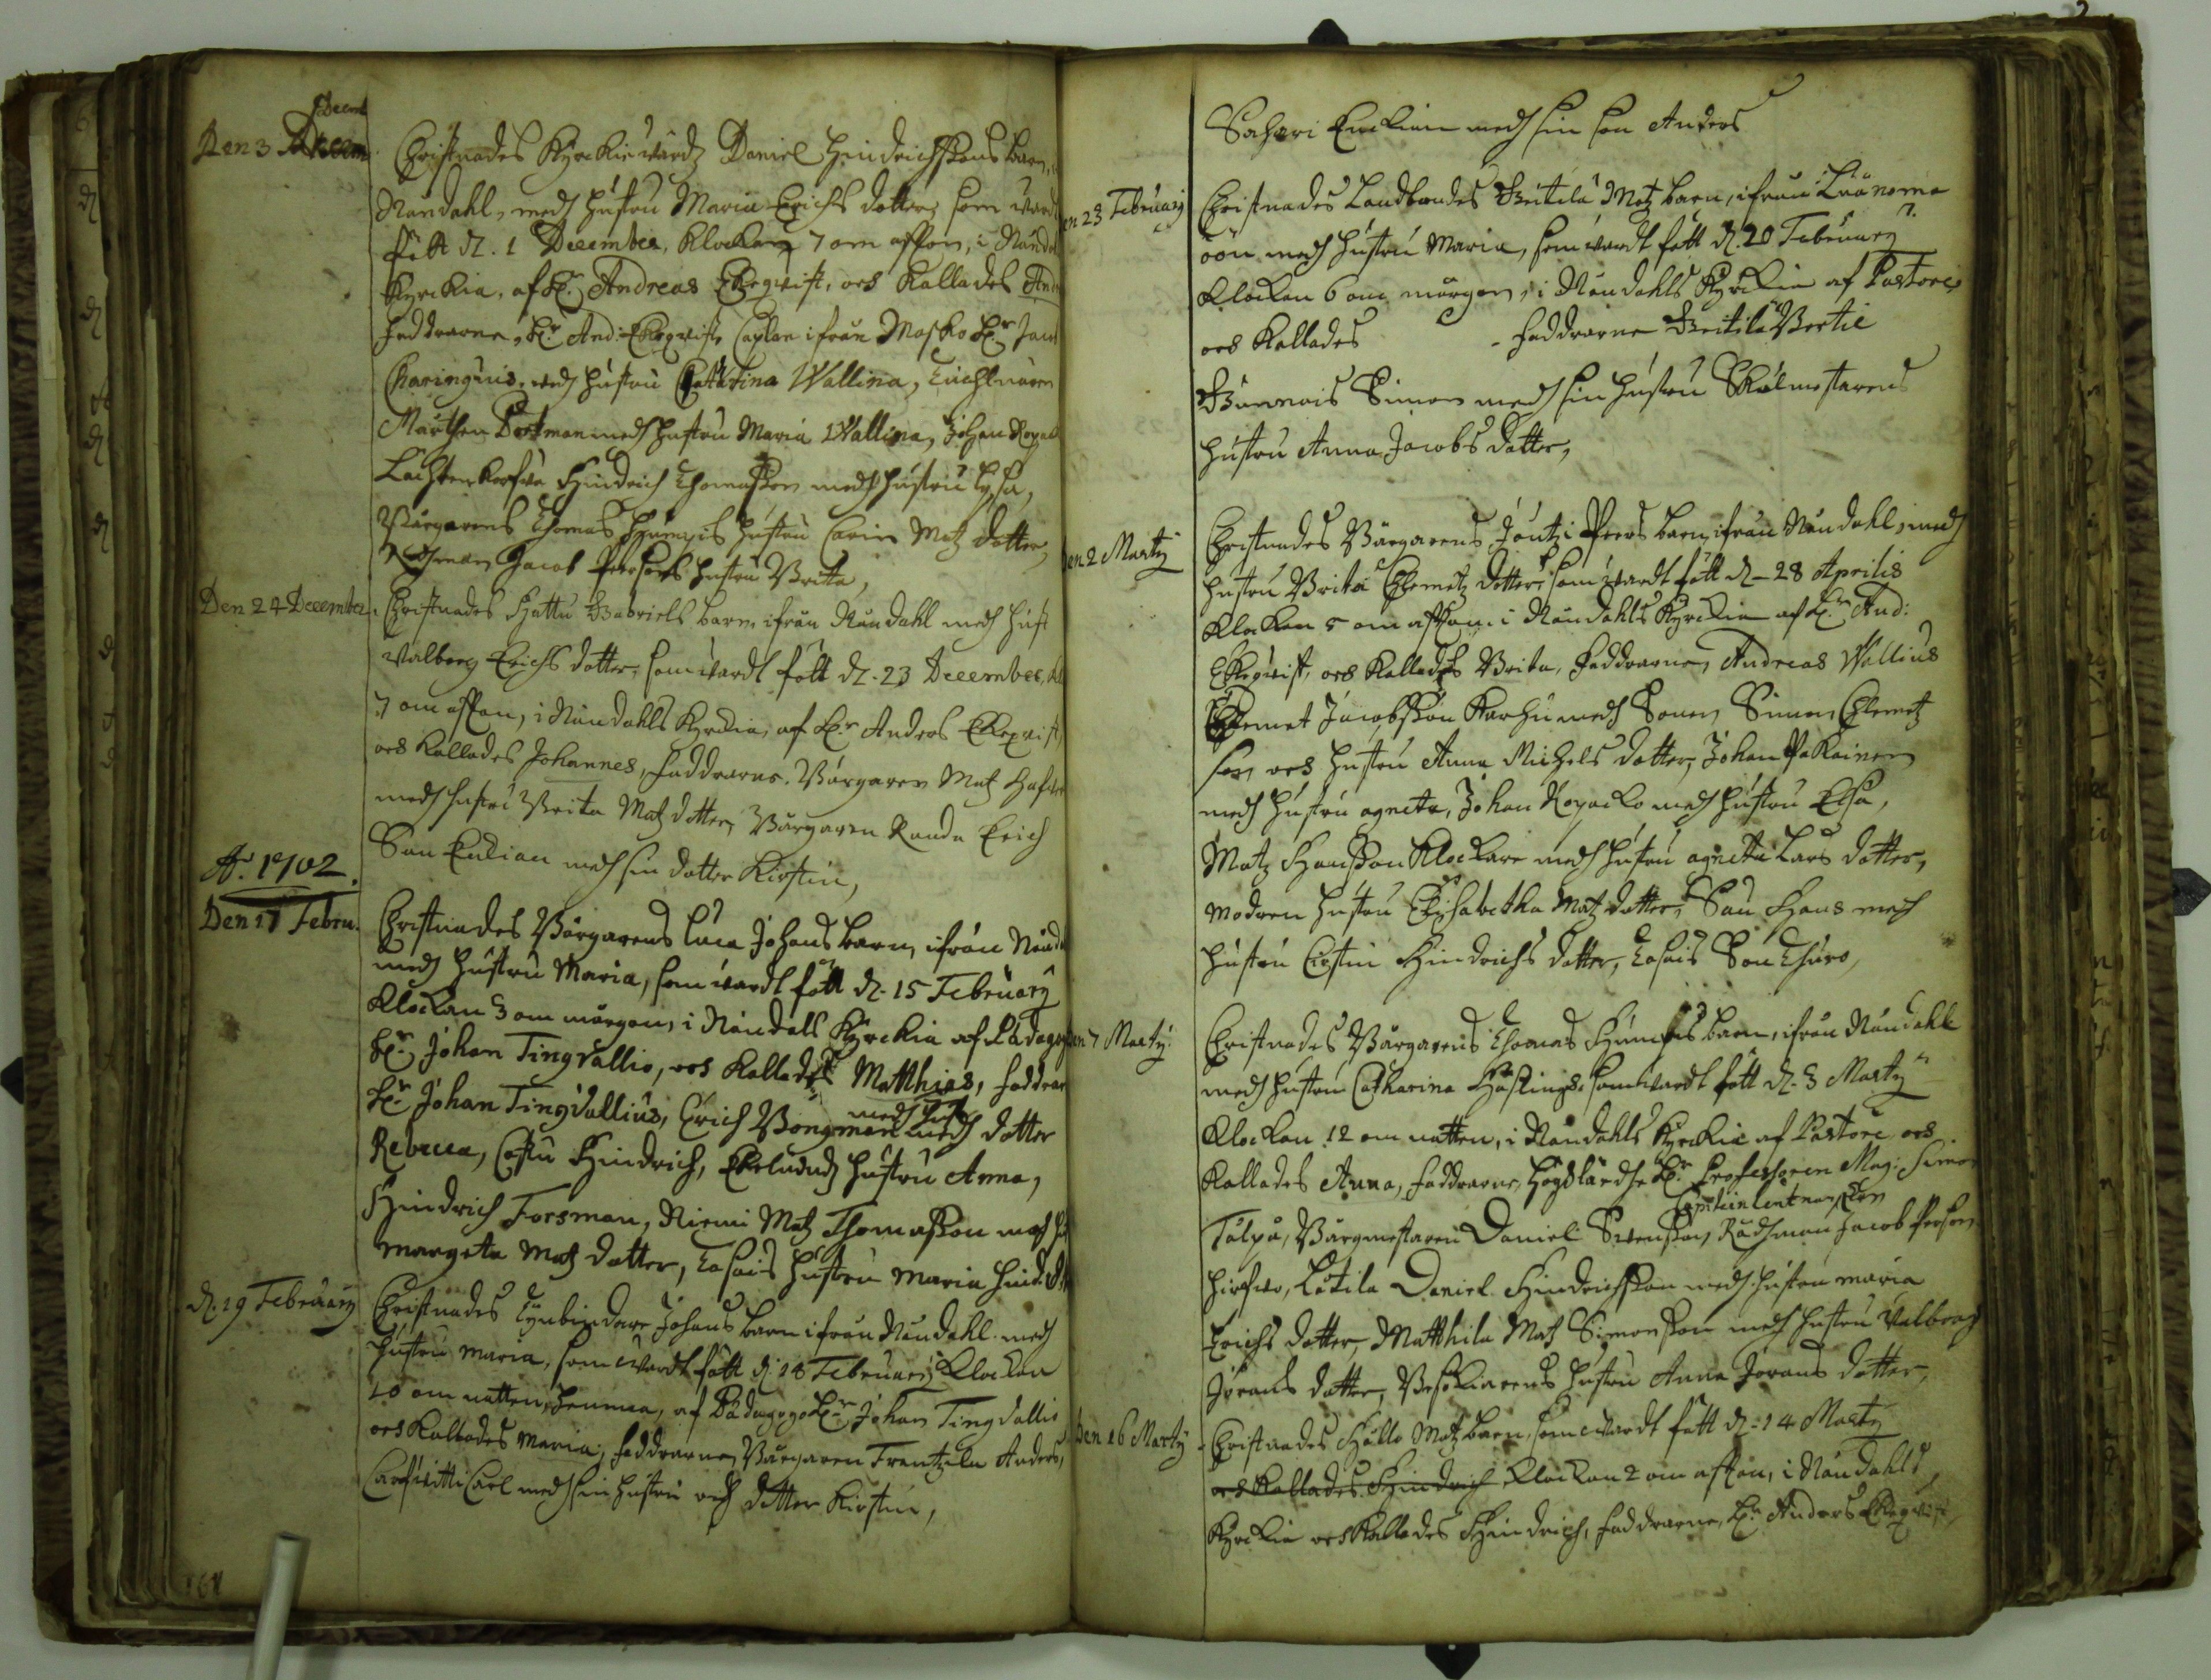 Decemb
Den 3 Decem. Christnades Kyrckiewärdz Daniel Hindrichssons barn,
Nåndahl, medh hustru Maria Erichs dotter, som wardt
fött d. 1 December, Klockan 7 om afton, i Nånda
Kyrckia, af Hr. Andreas Ekeqwist, och Kallades And
faddrarna, Hr. And: Ekeqwist, Caplan ifrån Masko Hr. Jacob
Charingius, medh hustru Catharina Wallina,
Mårthen Portman medh hustru Maria Wallina, Johan
Hindrich Thomasson medh hustru Lisa,
Bårgarens Thomas hustru Carin Matz dotter,
Rådhman Jacob Perssons hustru Britta,
Den 24 December. Christnades Hattu Gabriels barn, ifrån Nåndahl medh hust
Walborg Erichs dotter, som wardt fött d. 23 December, kl
7 om afton, i Nåndahls Kyrckia, af Hr. Anders Ekeqwist,
och kallades Johannes, faddrarne. Bårgaren Matz
medh hustru Brita Matz dotter, Bårgaren Randa Erich
Sau Enckian medh sin dotter Kirstin,
Ao. 1702.
Den 17 Febru. Christnades Bårgarens Luca Johans barn, ifrån Nånda
medh hustru Maria, som wardt fött d. 15 February
Klockan 3 om morgon, i Nåndals Kyrckia af Pædagogo
Hr. Johan Tingvallio, och kallades Matthias, faddrar
Hr. Johan Tingvallius, Erich Bongman medh dotter
medh hust
Rebecca, Castu Hindrich, Ekeludds hustru Anna,
Hindrich Forsman, Niemi Matz Thomasson medh hu
margeta Matz dotter, Lasais hustru Maria Hind: d
d. 19 February Christnades Johans barn ifrån Nåndahl medh
hustru Maria, som wardt fött d. 18 February Klockan
10 om natten, hemma, af Pædagogo Hr. Johan Tingvallio
och Kallades Maria, faddrarna, Bårgaren Frantzila Anders,
Carl medh sin hustru och dotter Kirstin,
164
Sahari Enckian medh sin son Anders
en 23 February Christnades Landbondes Beitilä Matz barn, ifrån Luonnoma
öön medh hustru Maria, som wardt fött d. 20 February
Klockan 6 om morgon, i Nåndahls Kyrckia af Pastore,
och Kallades - faddrarna Beitilä Bertil
Gunnais Simon medh sin hustru Skolmestarens
hustru Anna Jacobs dotter,
den 2 Marty Christnades Bårgarens Joutzi Peers barn, ifrån Nåndahl, medh
hustru Brita Clemetz dotter, som wardt fött d. 28 Aprilis
Klockan 5 om afton, i Nåndahls Kyrckia af Hr. And:
Ekeqwist, och Kallades Brita, Faddrarna, Andreas Wallius
Clemet Jacobsson Karhu medh Sonen Simon Clemetz
son och hustru Anna Michels dotter, Johan Pakainen
medh hustru agneta, Johan medh hustru Elsa,
Matz Hansson Klockare medh hustru agneta Lars dotter,
modren hustru Elisabetha Matz dotter, Sau Hans medh
hustru Cirstin Hindrichs dotter, Lasais Son Thuro,
den 7 Marty. Christnades Bårgarens Thomas barn, ifrån Nåndahl
medh hustru Catharina som wardt fött d. 3 Marty
Klockan 12 om natten, i Nåndahls Kyrckia af Pastore och
Kallades Anna, faddrarne, Högdlärdhe Hr. Professoren Mag: Simon
Capitein lentnanten
Tålpå, Bårgmestaren Daniel Swensson, Rådhman Jacob Person
Lötila Daniel Hindrichsson medh hustru maria
Erichs dotter, Matthila Matz Simonsson medh hustru Valborg
Jörans dotter, hustru Anna Jörans dotter,
Den 16 Marty Christnades Hällo Matz barn, som wardt fött d. 14 Marty
och Kallades Hindrich Klockan 2 om afton, i Nåndahls
Kyrckia och Kallades Hindrich, faddrarna, Hr. Anders Ekeqwist